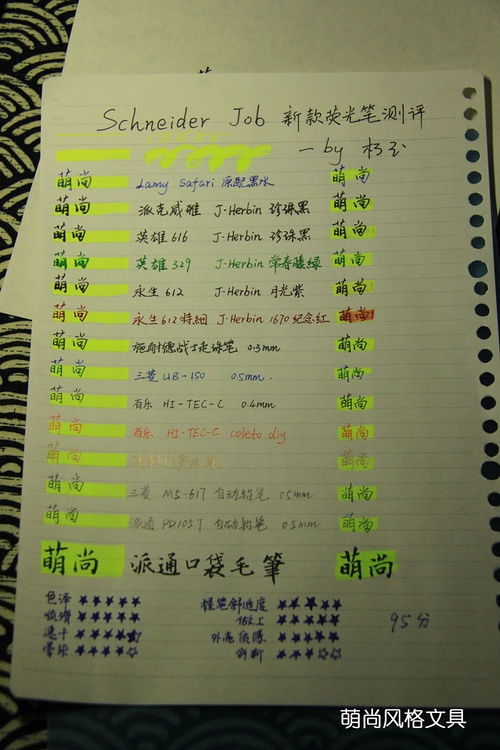 Schneider Job 新款荧光笔测评
一by
萌尚 Lamy Safari 原配黑水 萌尚
萌尚 派克威雅 J·Herbin 珍珠黑 萌尚
萌尚 英雄616 J·Herbin 珍珠黑 萌尚
萌尚 英雄329 J·Herbin 常春藤绿 萌尚
萌尚 永生612 J·Herbin 月光紫 萌尚
萌尚 永生612特细 J·Herbin 1670纪念红 萌尚
萌尚 施耐德战士走珠笔 0.3mm 萌尚
萌尚 三菱 UB-150 0.5mm. 萌尚
萌尚 百乐 HI-TEC-C 0.4mm 萌尚
萌尚 百乐 HI-TEC-C coleto diy 萌尚
萌尚 萌尚
萌尚 三菱 M5-617 自动铅笔 0.5mm 萌尚
萌尚 派通 PD105T 自动铅笔 0.5mm 萌尚
萌尚 派通口袋毛筆 萌尚
色泽 ★★★★★ 握笔舒适度 ★★★★★
顺滑 ★★★★★ 做工 ★★★★★
速干 ★★★★ ★★★★★
★★★★☆ 创新 ★★★☆☆
95分
萌尚风格文具